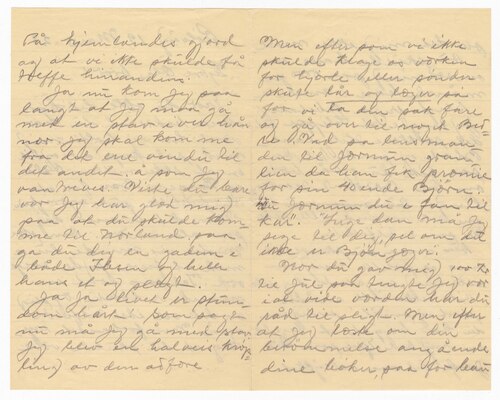 På hjemlandes jord
og at vi ikke skulde få
treffe hinanden.
Ja nu kom jeg paa
langt at jeg maa gå
med en stav i ver hån
nor jeg skal komme
fra det ene vindu til
det andet. å som jeg
vantrives. Viste du bare
vor jeg har gled meg
paa at du skulde kom-
me til Norland paa
ga du dig en gadem i
både Ibsen og heller
hans et og slagt.
Ja ja livet er stun
dom hårt som sagt
nu må jeg gå med stav
jeg blev en halveis krøp-
ling av den
Men efter som vi ikke
skulde klage os vorken
for hjerte eller sonder
skute lår og legger så
for vi ta den sak fare
og gå over til noget
Vad sa lensman
den til Jormun gran
lien da han fik promie
for sin 40ende Bjørn.
Du Jormun du e fan til
kar". "Inge dan må jeg
seie til dig, sel om du
ikke er Bjøn
Nor du gav meg
til Jul saa tengte jeg vor
i al vide vorden har du
råd til sligt. Men efter
at jeg læste om din
berømmelse angående
dine bøker, saa for